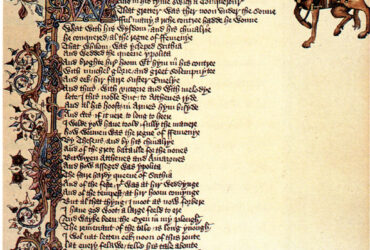 in his tyme swich a Conquerour
That gretter was ther noon under the Sonne
ful many a riche contree hadde he wonne
What with his wysdom and his chivalrie
he conquered al the regne of ffemenye
That whilom was ycleped Scithia
And wedded the queene ypolita
And broghte hir hoom with hym in his contree
With muchel glorie and greet solempnytee
And eek hir faire suster Emelye
And thus with victorie and with melodye
lete I this noble duc to Atthenes ryde
And al his hoost in Armes hym bisyde
And certes if it nere to long to heere
I wolde yow have toold fully the manere
how wonnen was the regne of ffemenye
By Theseus and by his chivalrye
And of the grete bataille for the nones
Bitwixen Atthenes and Amazones
And how asseged was ypolita
The faire hardy queene of Scithia
And of the feste that was at hir weddynge
And of the tempest at hir hoom comynge
But al that thyng I moot as now forbere
I have god woot a large feeld to ere
And wayke been the Oxen in my plough
The remenant of the tale is long ynough
I wol nat letten eek noon of this route
lat every felawe telle his tale aboute